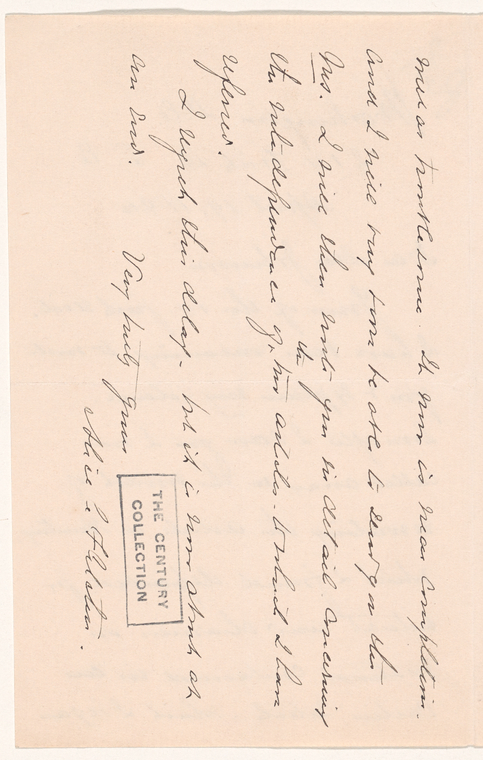 me as troublesome. It now is near completion.
and I will very soon be able to send you the
Ms. I will then write you in detail concerning
the interdependence of the two articles - to which I have
referred.
I regret this delay - but it is now about at
an end.
Very truly yours
Alice C Fletcher.
THE CENTURY
COLLECTION